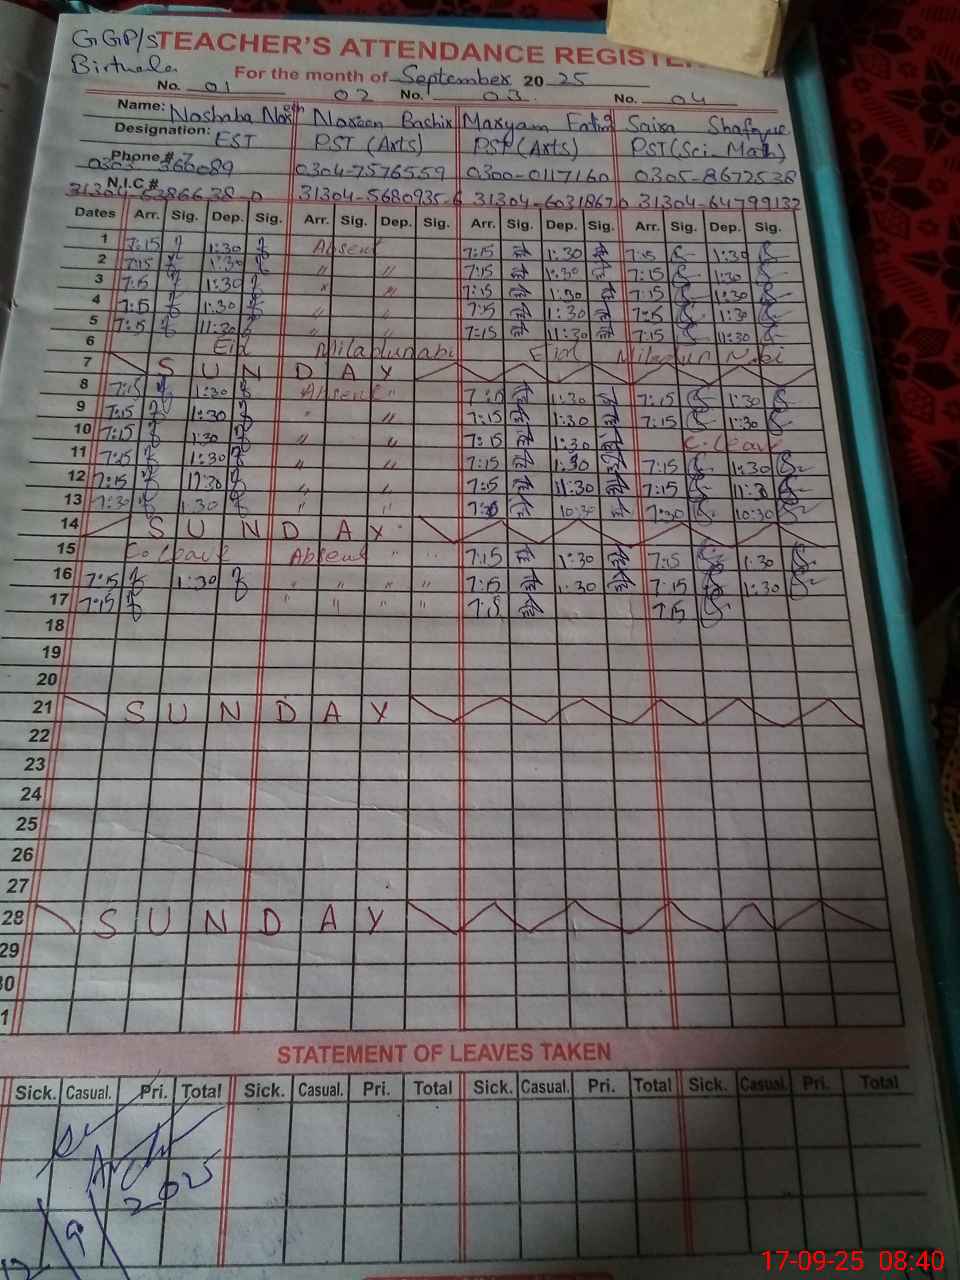 GGP/S TEACHER'S ATTENDANCE REGISTE
Birtwala For the month of September 2025
No. 01 02 No. 03 No. 04
Name: Noshaba Noreen Noreen Bashir Maryam Fatima Saira Shafique
Designation: EST PST (Arts) PST (Arts) PST (Sci. Math)
Phone # 0304-7576559 0300-0117160 0305-8672538
N.I.C # 31304-5680935-6 31304-6031867 31304-64799132
Dates Arr. Sig. Dep. Sig. Arr. Sig. Dep. Sig. Arr. Sig. Dep. Sig. Arr. Sig. Dep. Sig.
1 7:15 1:30 Absent 7:15 1:30 7:15 1:30
2 7:15 1:30 " " 7:15 1:30 7:15 1:30
3 7:15 1:30 " " 7:15 1:30 7:15 1:30
4 7:15 1:30 " " 7:15 11:30 7:15 1:30
5 7:15 11:30 " " 7:15 11:30 7:15 11:30
6 Eid Milad un Nabi Eid Milad un Nabi
7 S U N D A Y
8 7:15 1:30 Absent " 7:15 1:30 7:15 1:30
9 7:15 1:30 " " 7:15 1:30 7:15 1:30
10 7:15 1:30 " " 7:15 1:30 C. leave
11 7:15 1:30 " " 7:15 1:30 7:15 1:30
12 7:15 11:30 " " 7:15 11:30 7:15 11:30
13 7:30 1:30 " " 7:30 10:30 7:30 10:30
14 S U N D A Y
15 C. leave Absent " " 7:15 1:30 7:15 1:30
16 7:15 1:30 " " " " 7:15 1:30 7:15 1:30
17 7:15 " " " " 7:15 7:15
18
19
20
21 S U N D A Y
22
23
24
25
26
27
28 S U N D A Y
29
30
1
STATEMENT OF LEAVES TAKEN
Sick. Casual. Pri. Total Sick. Casual. Pri. Total Sick. Casual. Pri. Total Sick. Casual. Pri. Total
2025
17-09-25 08:40